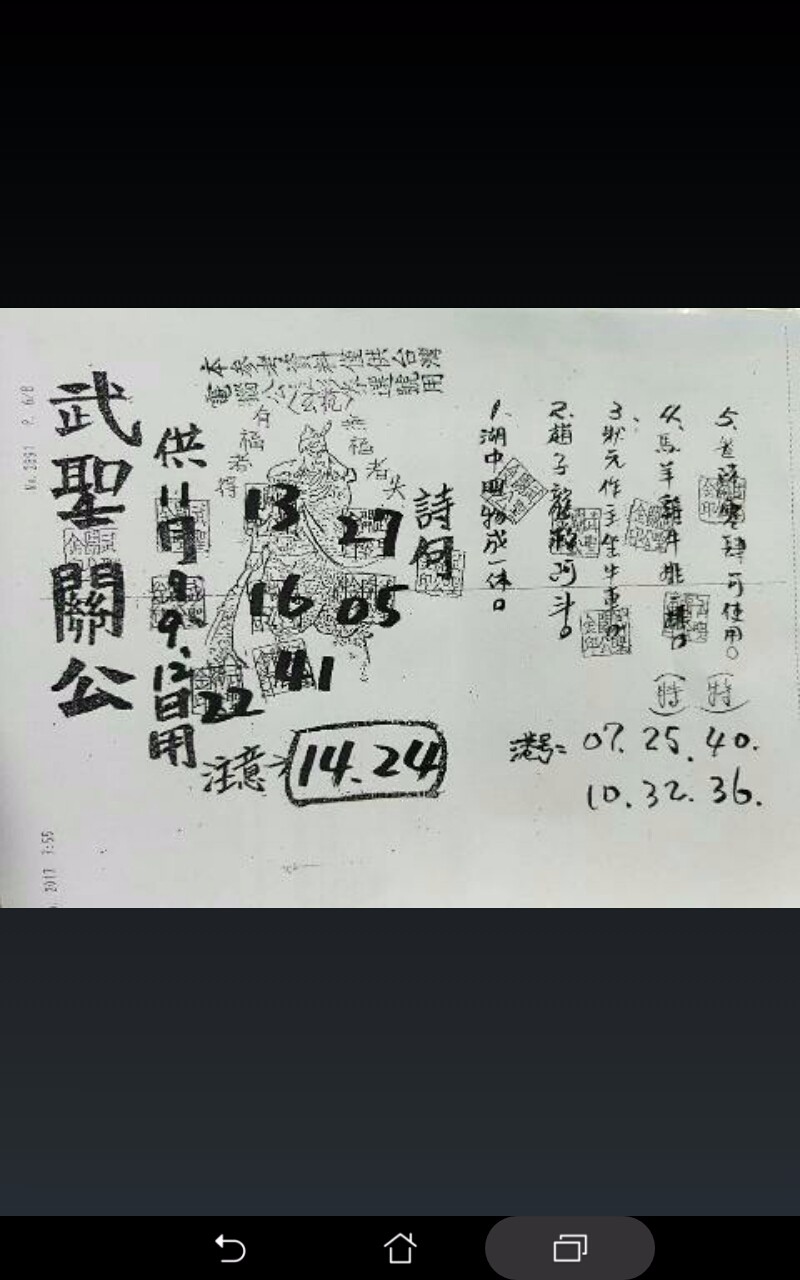 No. 3891 P. 6/8
本參考資料僅供台灣
電腦公益彩券選號用
有福者得
無福者失
武聖關公
供11月9.12日用
13
27
16
05
41
22
注意
14.24
詩句
1.湖中四物成一体。
2.趙子龍救阿斗。
3.狀元作主坐牛車。
4.馬羊雞牛排
5.零肆可使用。
(特)
(特)
港号= 07.25.40.
10.32.36.
2017 7:55